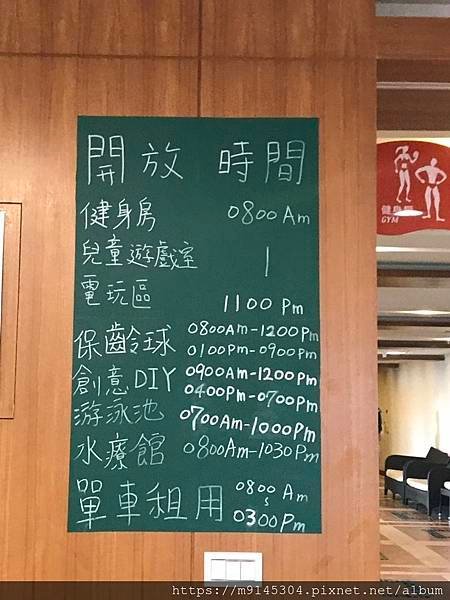 開放 時間
健身房 0800 Am
兒童遊戲室 |
電玩區 1100 Pm
保齡球 0800Am-1200Pm
0100Pm-0900Pm
創意DIY 0900Am-1200Pm
0400Pm-0700Pm
游泳池 0700Am-1000Pm
水療館 0800Am-1030Pm
單車租用 0800 Am
~
0300 Pm
健身房
GYM
https://m9145304.pixnet.net/album